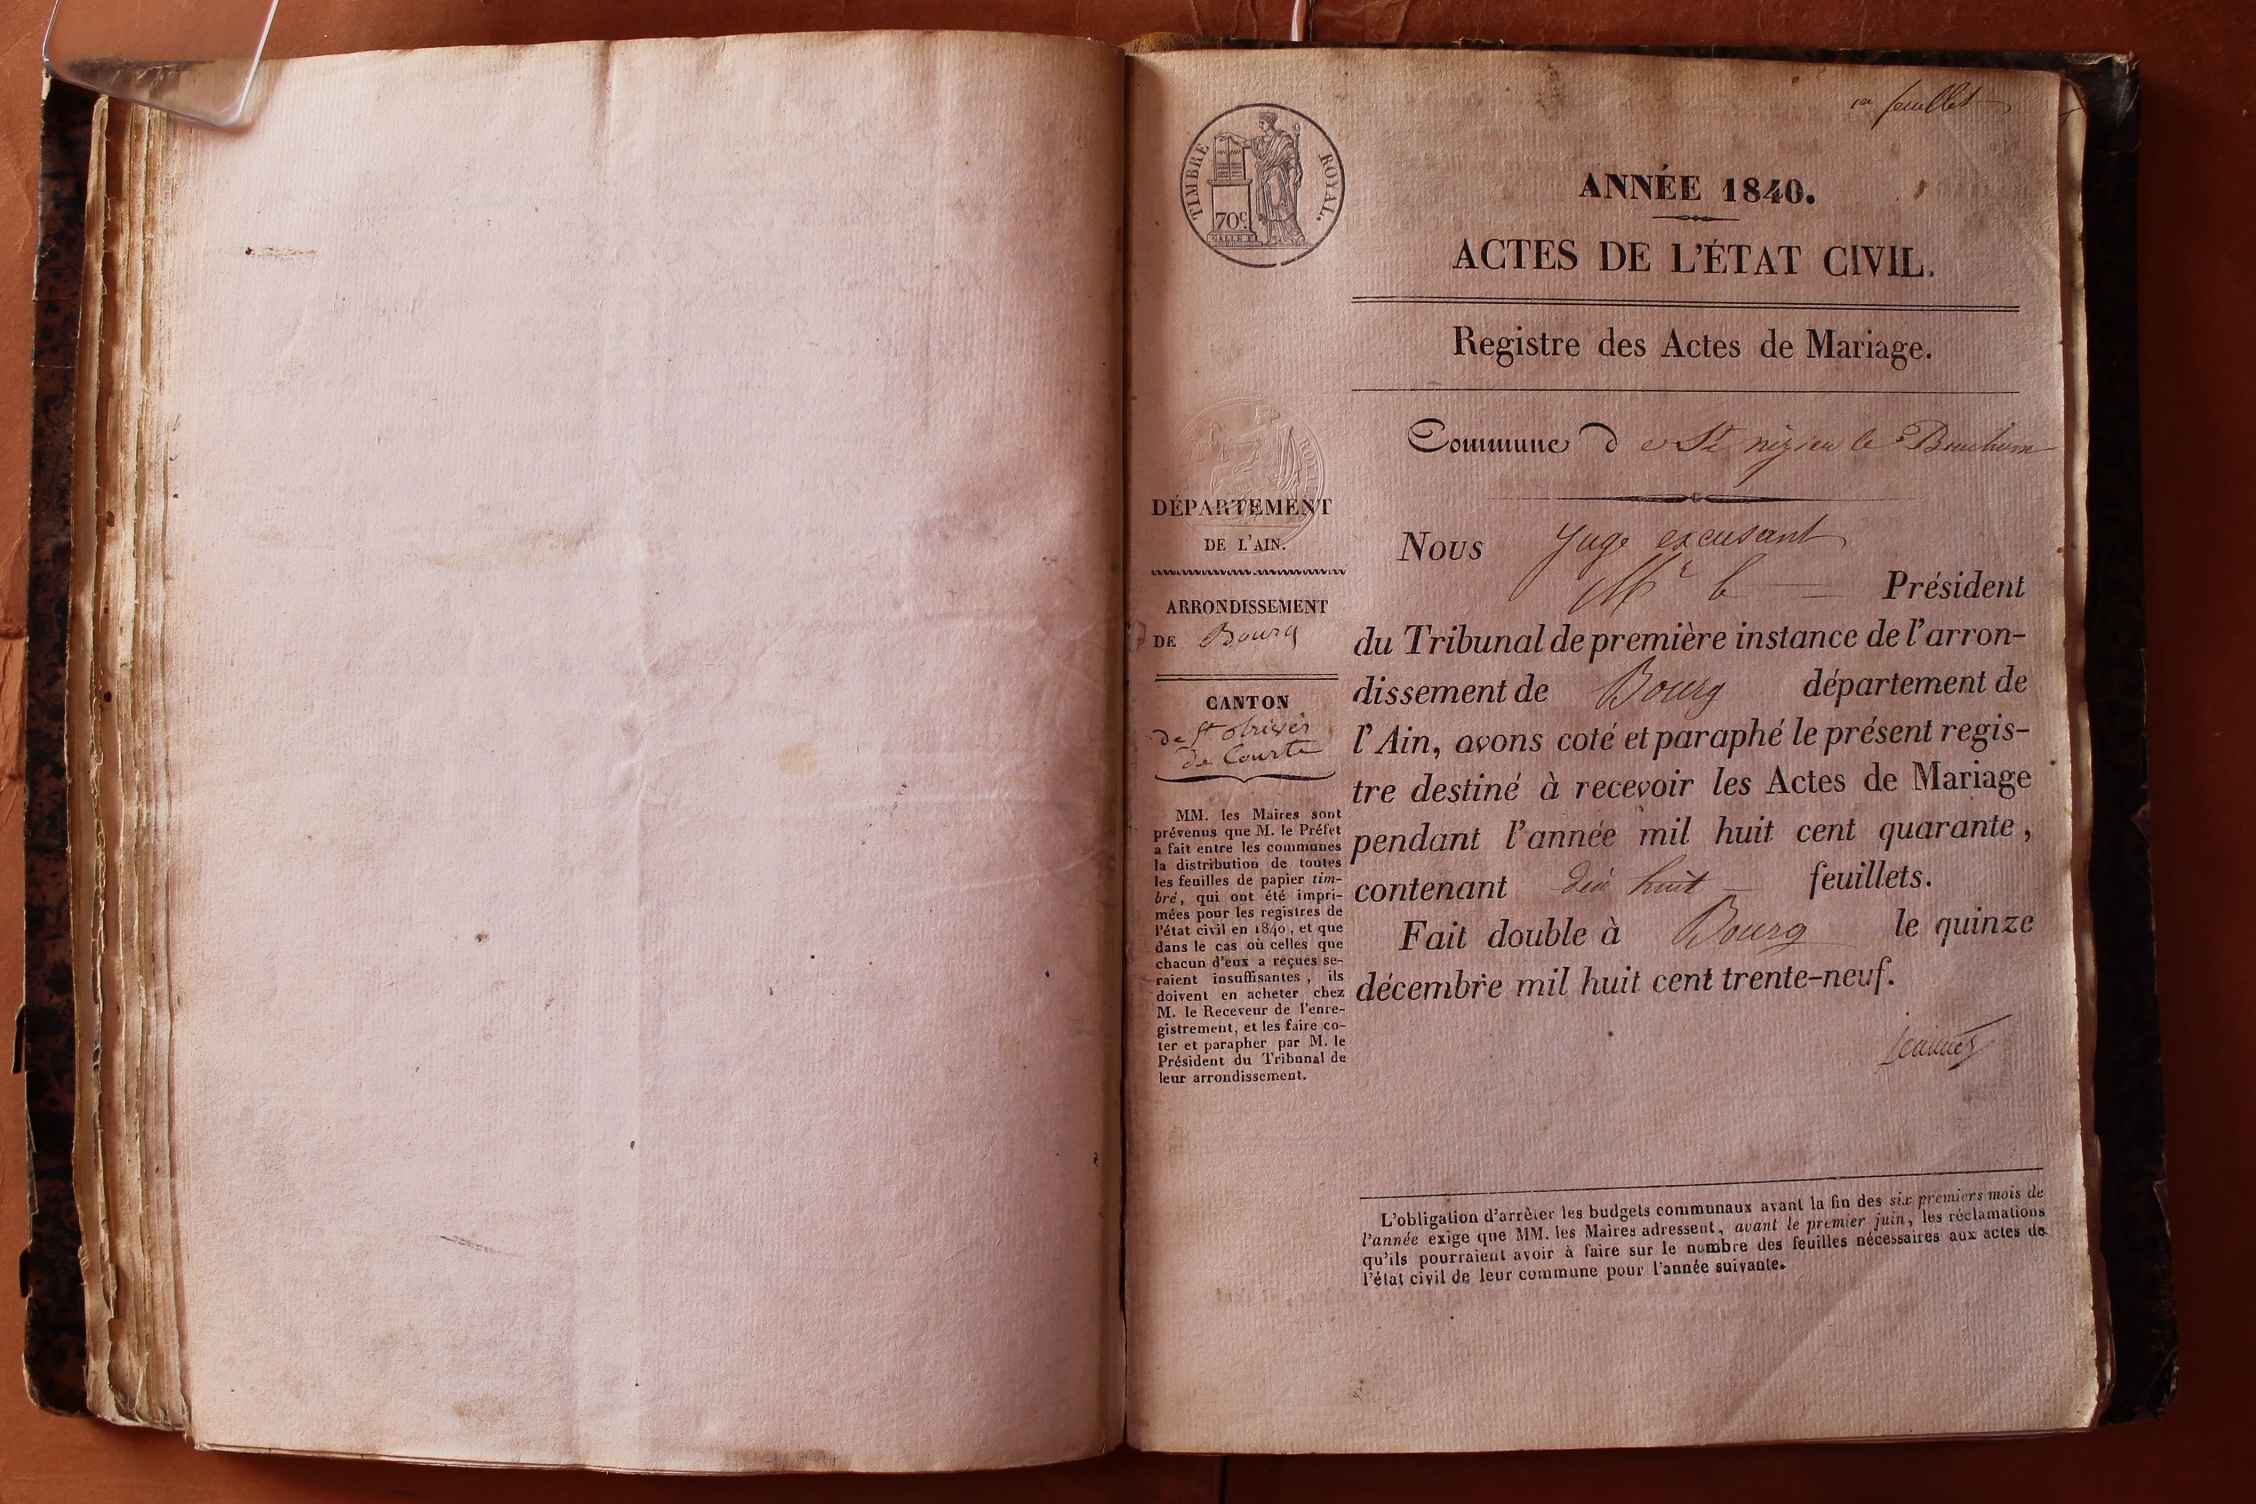 1er feuillet
TIMBRE ROYAL.
70c
ANNÉE 1840.
ACTES DE L'ÉTAT CIVIL.
Registre des Actes de Mariage.
Commune d e St nizier le Bouchoux
DÉPARTEMENT
DE L'AIN.
ARRONDISSEMENT
DE Bourg
CANTON
de St trivier
de Courte
MM. les Maires sont
prévenus que M. le Préfet
a fait entre les communes
la distribution de toutes
les feuilles de papier tim-
bré, qui ont été impri-
mées pour les registres de
l'état civil en 1840, et que
dans le cas où celles que
chacun d'eux a reçues se-
raient insuffisantes, ils
doivent en acheter chez
M. le Receveur de l'enre-
gistrement, et les faire co-
ter et parapher par M. le
Président du Tribunal de
leur arrondissement.
Nous Juge excusant
Mr le Président
du Tribunal de première instance de l'arron-
dissement de Bourg département de
l'Ain, avons coté et paraphé le présent regis-
tre destiné à recevoir les Actes de Mariage
pendant l'année mil huit cent quarante,
contenant dix huit feuillets.
Fait double à Bourg le quinze
décembre mil huit cent trente-neuf.
L'obligation d'arrêter les budgets communaux avant la fin des six premiers mois de
l'année exige que MM. les Maires adressent, avant le premier juin, les réclamations
qu'ils pourraient avoir à faire sur le nombre des feuilles nécessaires aux actes de
l'état civil de leur commune pour l'année suivante.